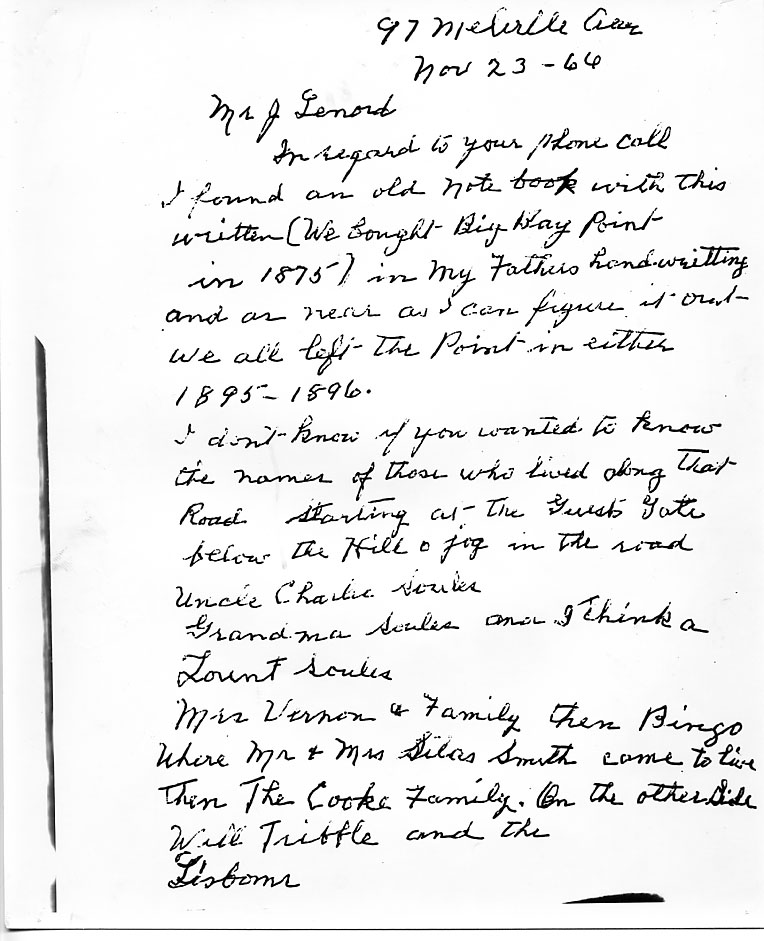 97 Melville Ave
Nov 23 - 66
Mr J Lenord
In regard to your phone call
I found an old note book with this
written (We bought Big Bay Point
in 1875) in My Fathers handwritting
and as near as I can figure it out
we all left the Point in either
1895 - 1896.
I don't know if you wanted to know
the names of those who lived along that
Road starting at the Guests Gate
below the Hill & jog in the road
Uncle Charlie Soules
Grandma Soules and I think a
Lount Soules
Mrs Vernon & Family then Bingo
Where Mr & Mrs Silas Smith came to live
Then The Cooke Family. On the other Side
Will Tribble and the